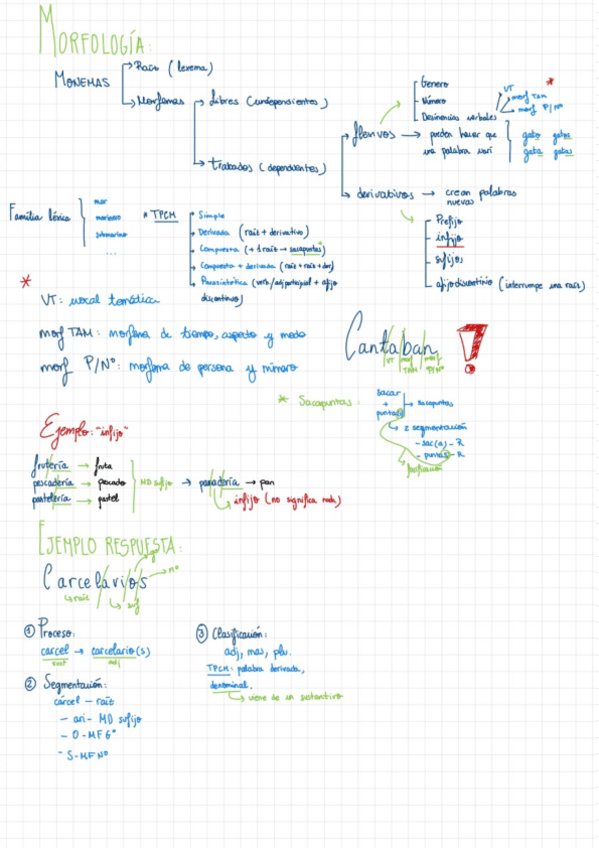 MORFOLOGÍA:
MONEMAS
Raíz (lexema)
Morfemas
Libres (independientes)
Trabados (dependientes)
flexivos → pueden hacer que
una palabra varí
Género
Número
Desinencias verbales
VT
morf TAM
morf P/Nº
*
gato gatos
gata gatas
derivativos → crean palabras
nuevas
Prefijo
infijo
sufijos
afijo discontinio (interrumpe una raíz)
Familia léxica
mar
marinero
submarino
...
* TPCM
Simple
Derivada (raíz + derivativo)
Compuesta (+ 1 raíz → sacapuntas)*
Compuesta + derivada (raíz + raíz + der)
Parasintética (verb/adj participial + afijo
discontinuo)
*
VT: vocal temática
morf TAM: morfema de tiempo, aspecto y modo
morf P/Nº: morfema de persona y número
Cantaban !
VT morf TAM morf P/Nº
* Sacapuntas:
sacar
+
puntas
→ sacapuntas
2 segmentación
- sac(a) - R
- puntas - R
Ejemplo: "infijo"
frutería → fruta
pescadería → pescado
pastelería → pastel
MD sufijo → panadería → pan
infijo (no significa nada)
EJEMPLO RESPUESTA:
Carcelarios
raíz
suf
gº
nº
① Proceso:
carcel → carcelario(s)
sust adj
② Segmentación:
cárcel - raíz
- ari - MD sufijo
- O - MF Gº
- S - MF Nº
③ Clasificación:
adj, mas, plu.
TPCM: palabra derivada,
denominal.
viene de un sustantivo